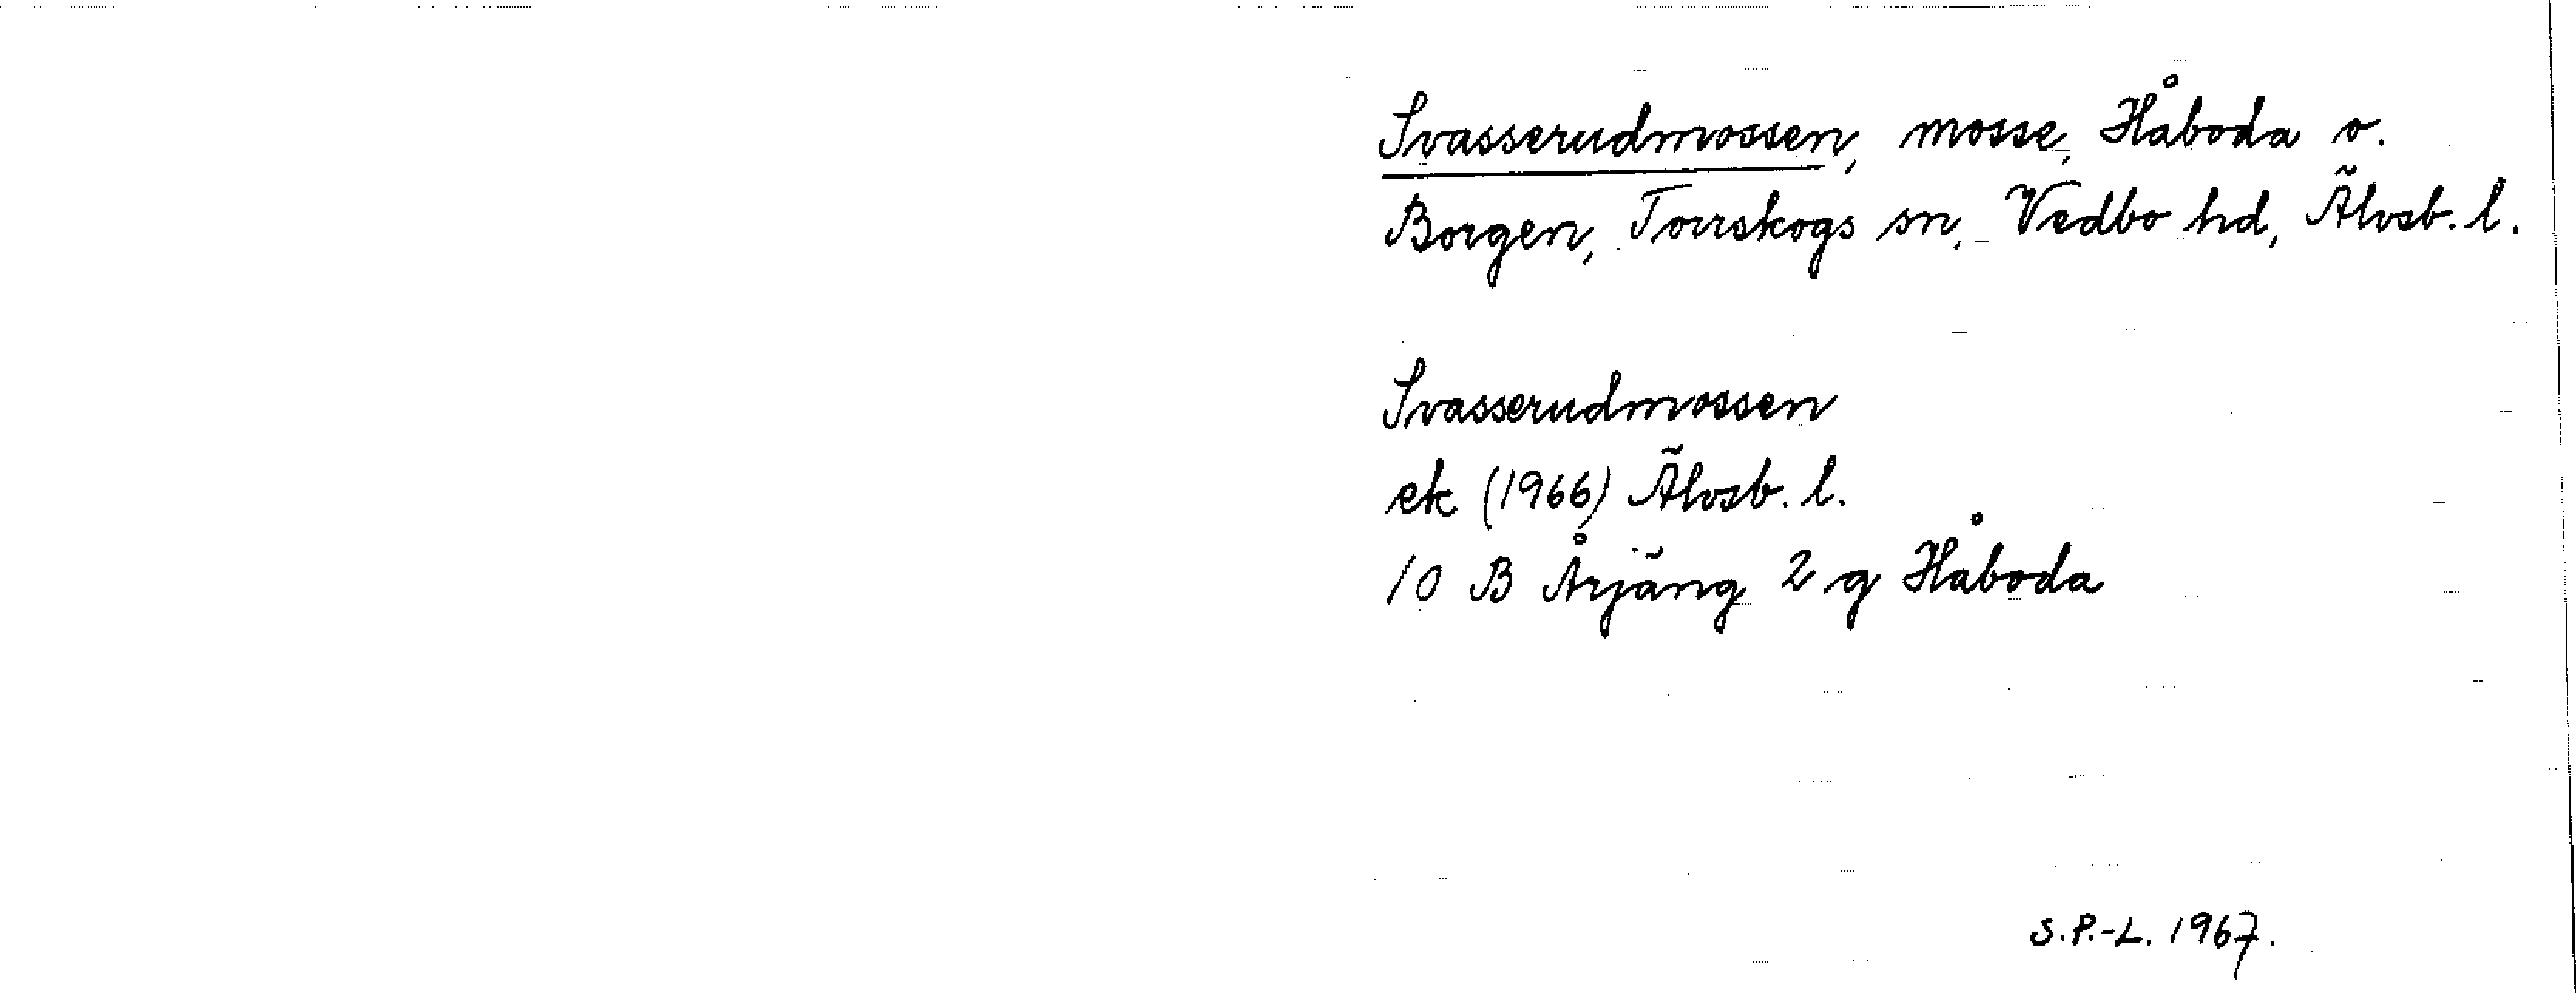 Svasserudmossen, mosse, Håboda o.
Borgen, Torrskogs sn, Vedbo hd, Älvsb. l.
Svasserudmossen
ek (1966) Älvsb. l.
10 B Årjäng 2 g Håboda
S.P.-L. 1967.